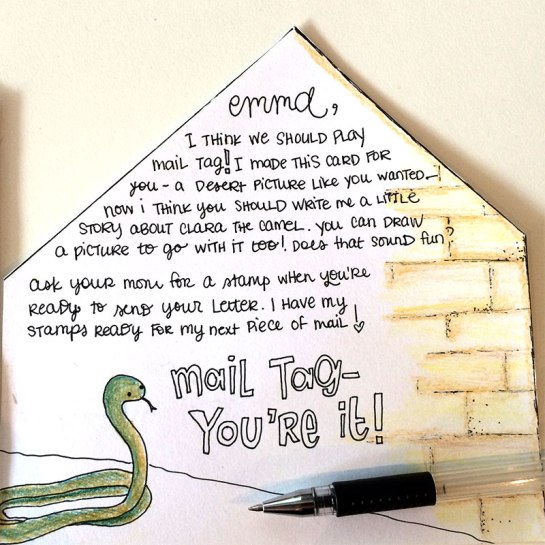 emma,
I THINK WE SHOULD PLAY
mail TAG! I MADE THIS CARD FOR
you - a DESERT PICTURE LIKE YOU WANTED -
now i THINK you SHOULD WRITE ME a LITTLE
STORY ABOUT CLARA THE CAMEL. you can DRAW
a PICTURE TO GO WITH IT too! Does that sound fun?
ask your mom for a stamp when you're
READY to send your LETTER. I HAVE my
STAMPS READY FOR my next PIECE of mail!
maiL TaG-
YOU'RE it!